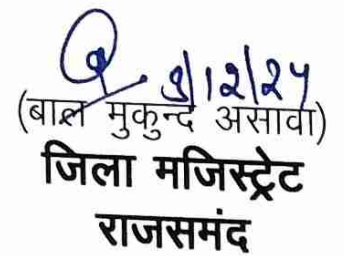 9/12/24
(बाल मुकुन्द असावा)
जिला मजिस्ट्रेट
राजसमंद